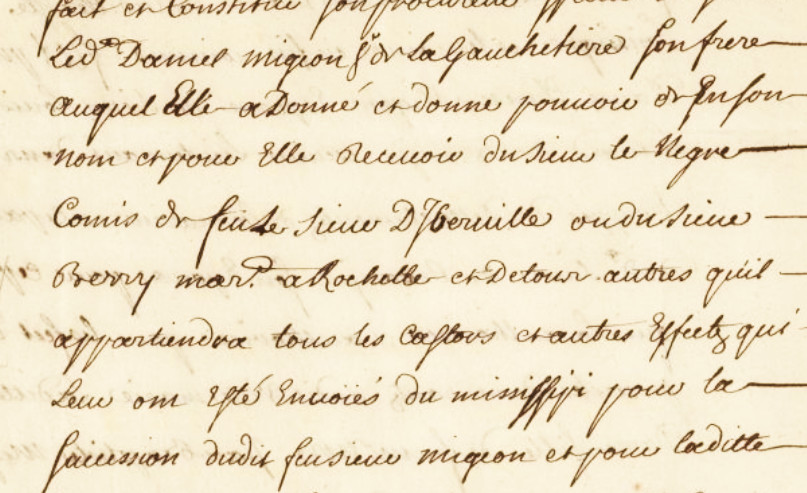 fait et Constitué son procureur
Led.t Daniel migeon Sr de La Gauchetiere son frere
auquel Elle a Donné et donne pouvoir de En son
nom et pour Elle Recevoir du Sieur le Negre
Comis de feu Le Sieur D'Iberville ou du Sieur
Berry mar.d a Rochelle et De tous autres quil
appartiendra tous les Castors et autres Effects qui
Leur ont Esté Envoiés du missisipi pour la
Sucession dudit feu sieur migeon et pour laditte